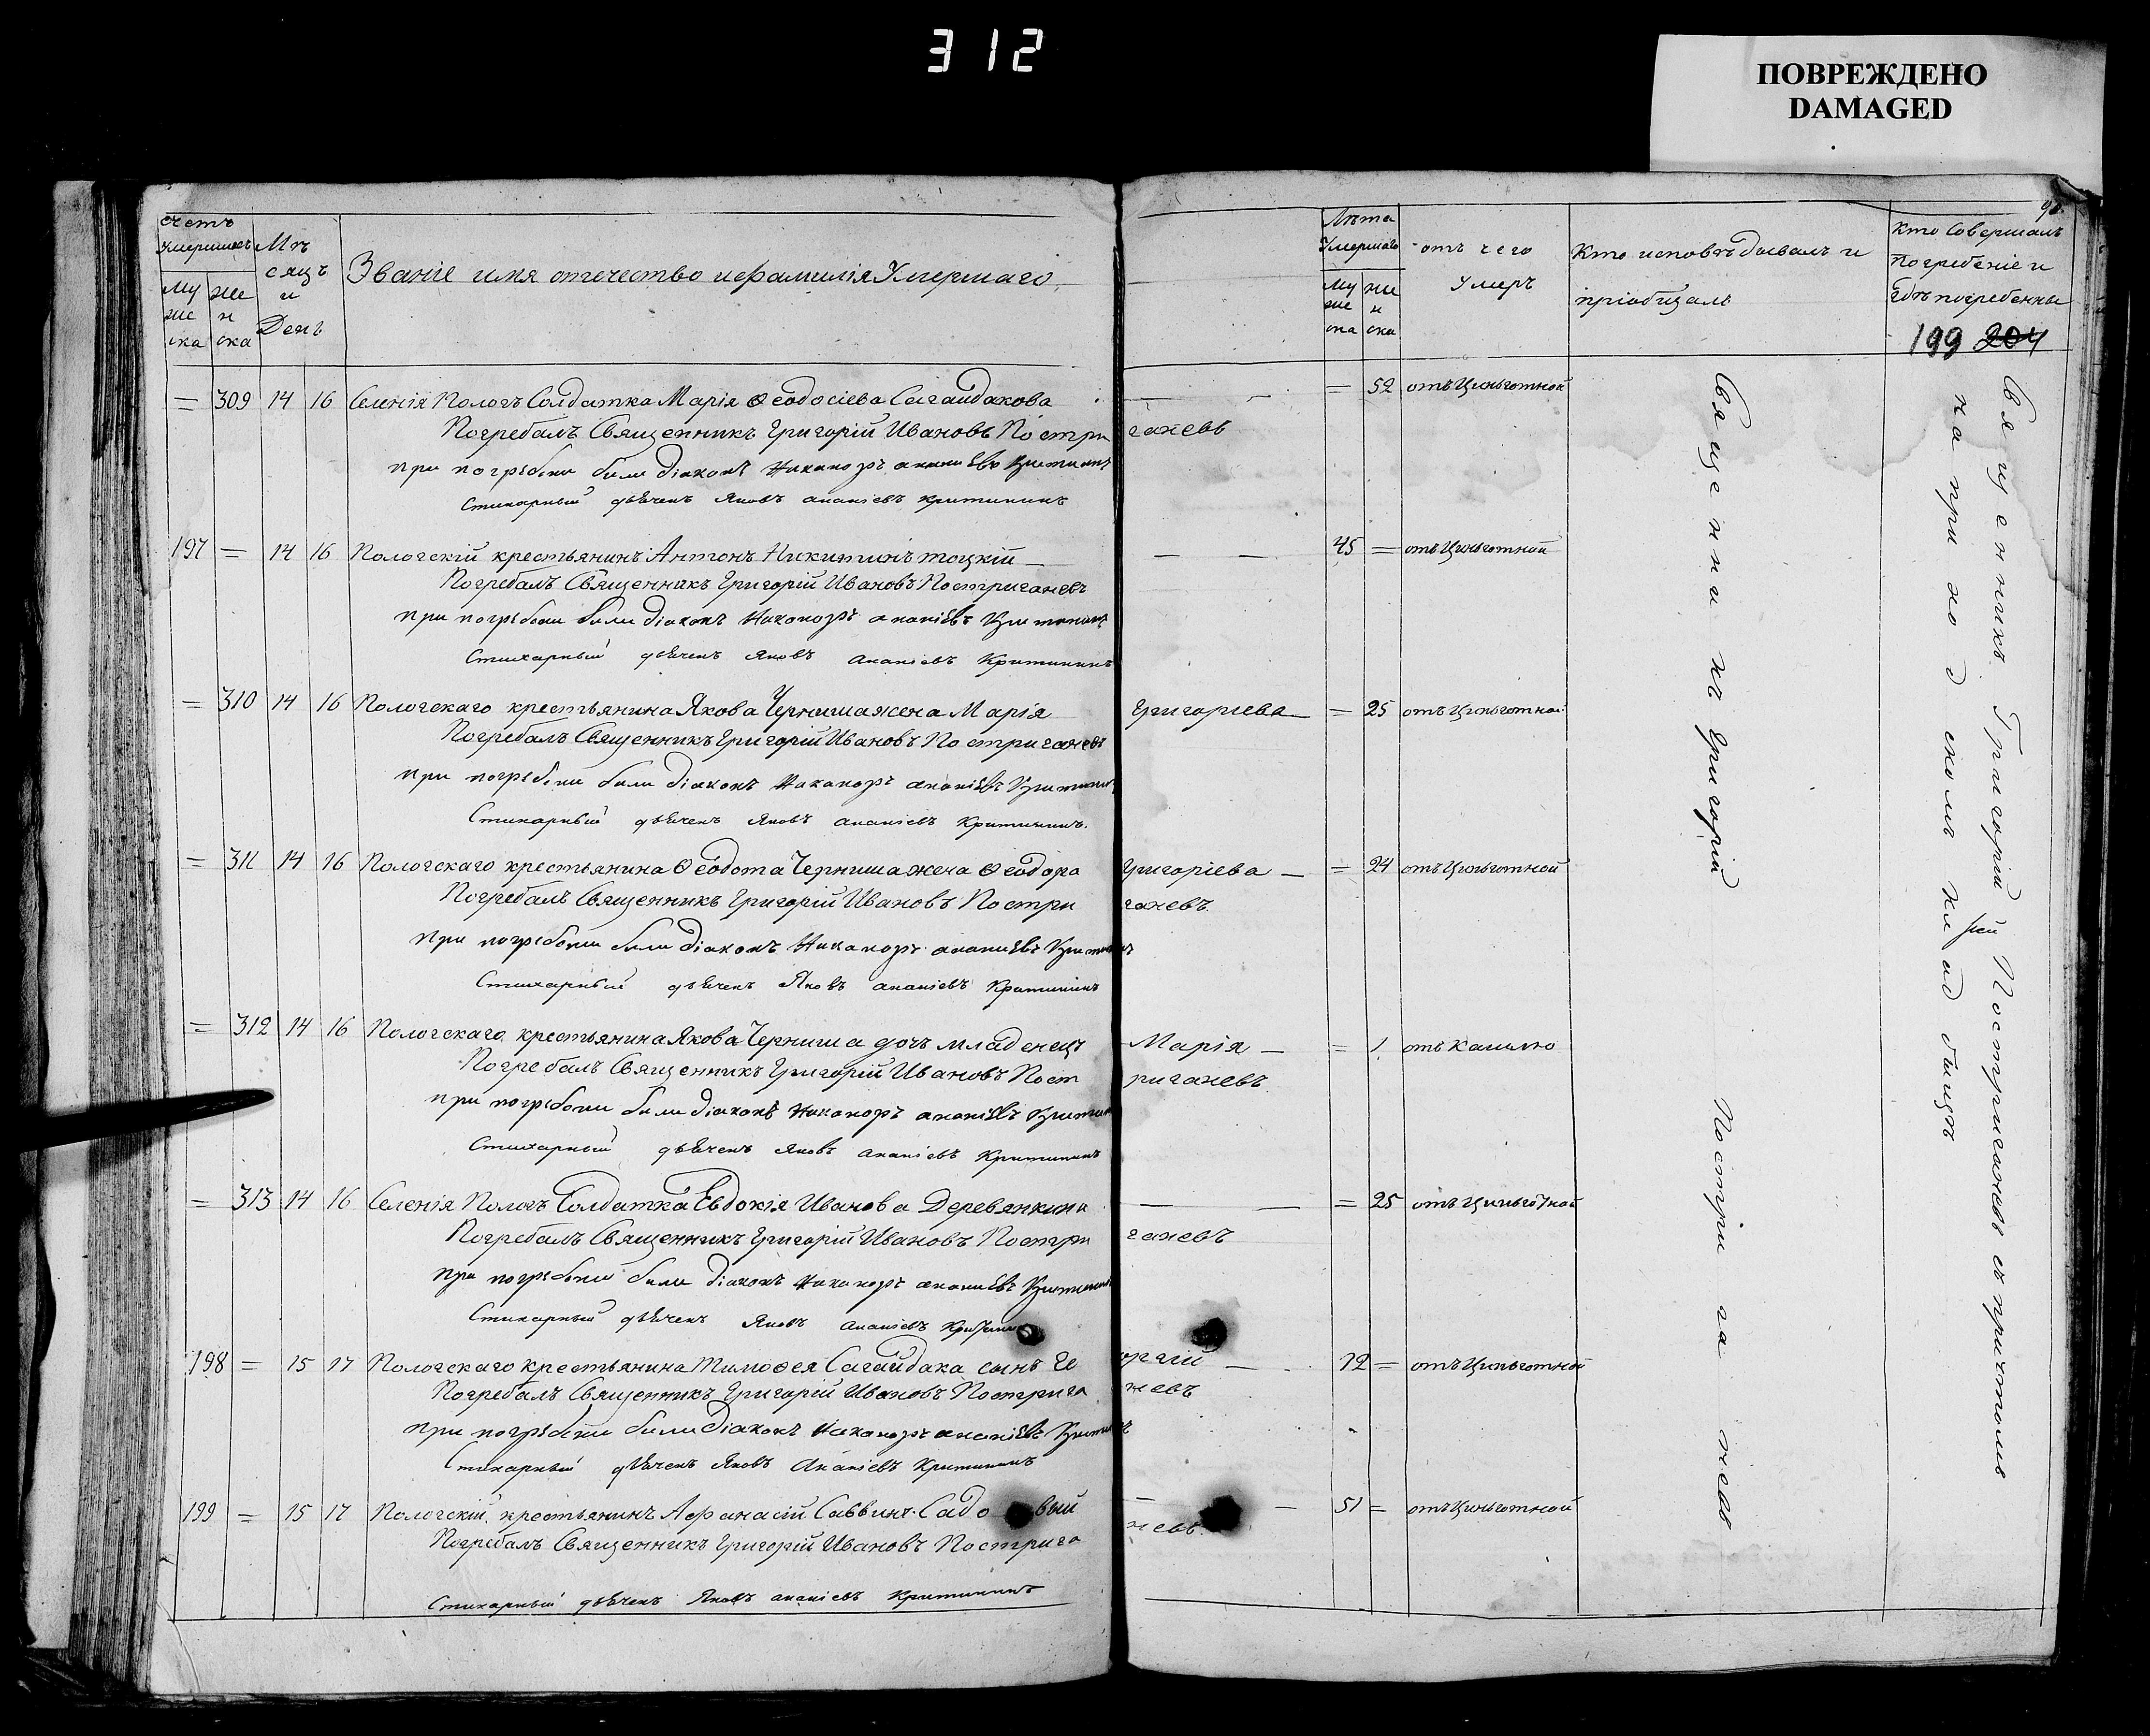 312
ПОВРЕЖДЕНО
DAMAGED
Счетъ Умершихъ
Муже ска
Жен ска
Мѣсяцъ и День
Званіе имя отечество и фамилія Умершаго
Лѣта Умершаго
Муже ска
Жен ска
отъ чего Умеръ
Кто исповѣдывалъ и пріобщалъ
Кто Совершалъ Погребеніе и гдѣ погребенны
199 204
= 309 14 16 Селенія Пологъ Солдатка Марія Ѳеодосіева Сагайдакова — — = 52 отъ Цынготной
Погребалъ Священникъ Григорій Ивановъ Постриганевъ
при погребени были діаконъ Никаноръ ананиевъ Критининъ
Стихарный дьячекъ Яковъ ананіевъ критининъ
197 = 14 16 Пологскій крестьянинъ Антонъ Никитинъ тоцкій — — 45 = отъ Цынготной
Погребалъ Священникъ Григорій Ивановъ Постриганевъ
при погребени были діаконъ Никаноръ ананіевъ Критининъ
Стихарный дьячекъ Яковъ ананіевъ Критининъ
= 310 14 16 Пологскаго крестьянина Якова Черниша жена Марія Григориева — = 25 отъ Цынготной
Погребалъ Священникъ Григорій Ивановъ Постриганевъ
при погребени были діаконъ Никаноръ ананіевъ Критининъ
Стихарный дьячекъ Яковъ ананіевъ Критининъ.
= 311 14 16 Пологскаго крестьянина Ѳеодота Черниша жена Ѳеодора Григоріева — = 24 отъ Цынготной
Погребалъ Священникъ Григорій Ивановъ Постриганевъ.
при погребени были діаконъ Никаноръ ананиевъ Критининъ
Стихарный дьячекъ Яковъ ананіевъ Критининъ
= 312 14 16 Пологскаго крестьянина Якова Черниша дочъ младенецъ Марія — = 1 отъ Кашлю
Погребалъ Священникъ Григорій Ивановъ Постриганевъ
при погребени были діаконъ Никаноръ ананіевъ Критининъ
Стихарный дьячекъ Яковъ ананіевъ Критининъ
= 313 14 16 Селенія Пологъ Солдатка Евдокія Иванова Деревянкина — — = 25 отъ Цынготной
Погребалъ Священникъ Григорій Ивановъ Постриганевъ
при погребени были діаконъ Никаноръ ананиевъ Критининъ
Стихарный дьячекъ Яковъ ананіевъ Критининъ
198 = 15 17 Пологскаго крестьянина Тимоѳея Сагайдака сынъ Георгій — 12 = отъ Цынготной
Погребалъ Священникъ Григорій Ивановъ Постриганевъ
при погребени были діаконъ Никаноръ ананіевъ Критининъ
Стихарный дьячекъ Яковъ Ананіевъ Критининъ
199 = 15 17 Пологскій крестьянинъ Аѳанасій Саввинъ Садовый — — 51 = отъ Цынготной
Погребалъ Священникъ Григорій Ивановъ Постриганевъ
Стихарный дьячекъ Яковъ ананіевъ Критининъ
Священникъ Григорій Постриганевъ
Священникъ Григорій Постриганевъ съ причтомъ
на приходскомъ кладбищѣ